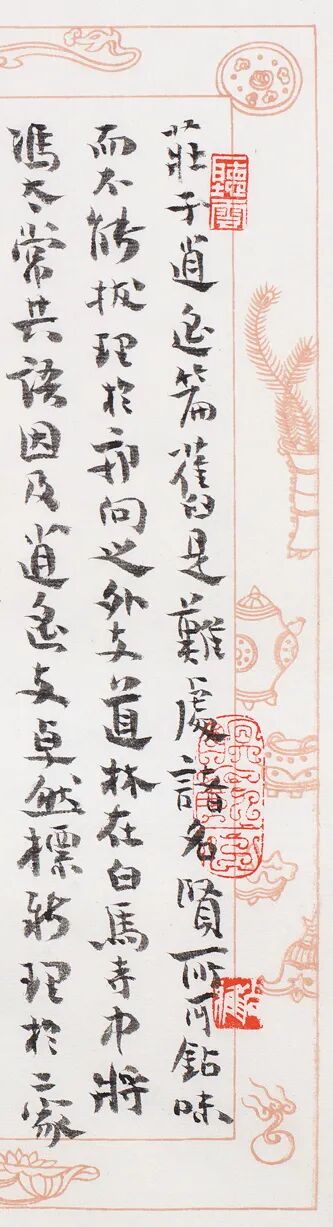 聽雲
莊子逍遙篇舊是難處諸名賢所可鉆味
而不能拔理於郭向之外支道林在白馬寺中將
馮太常共語因及逍遙支卓然標新理於二家